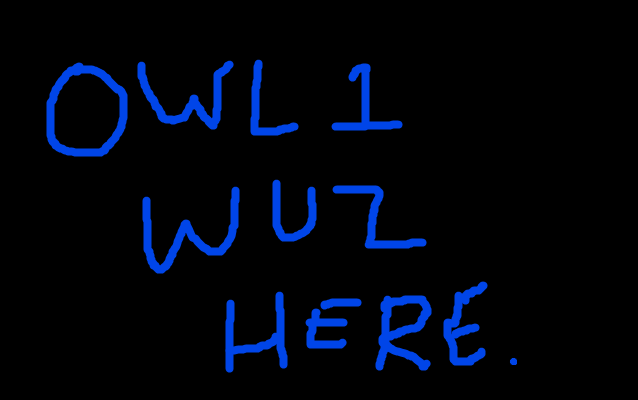 OWL 1
WUZ
HERE.